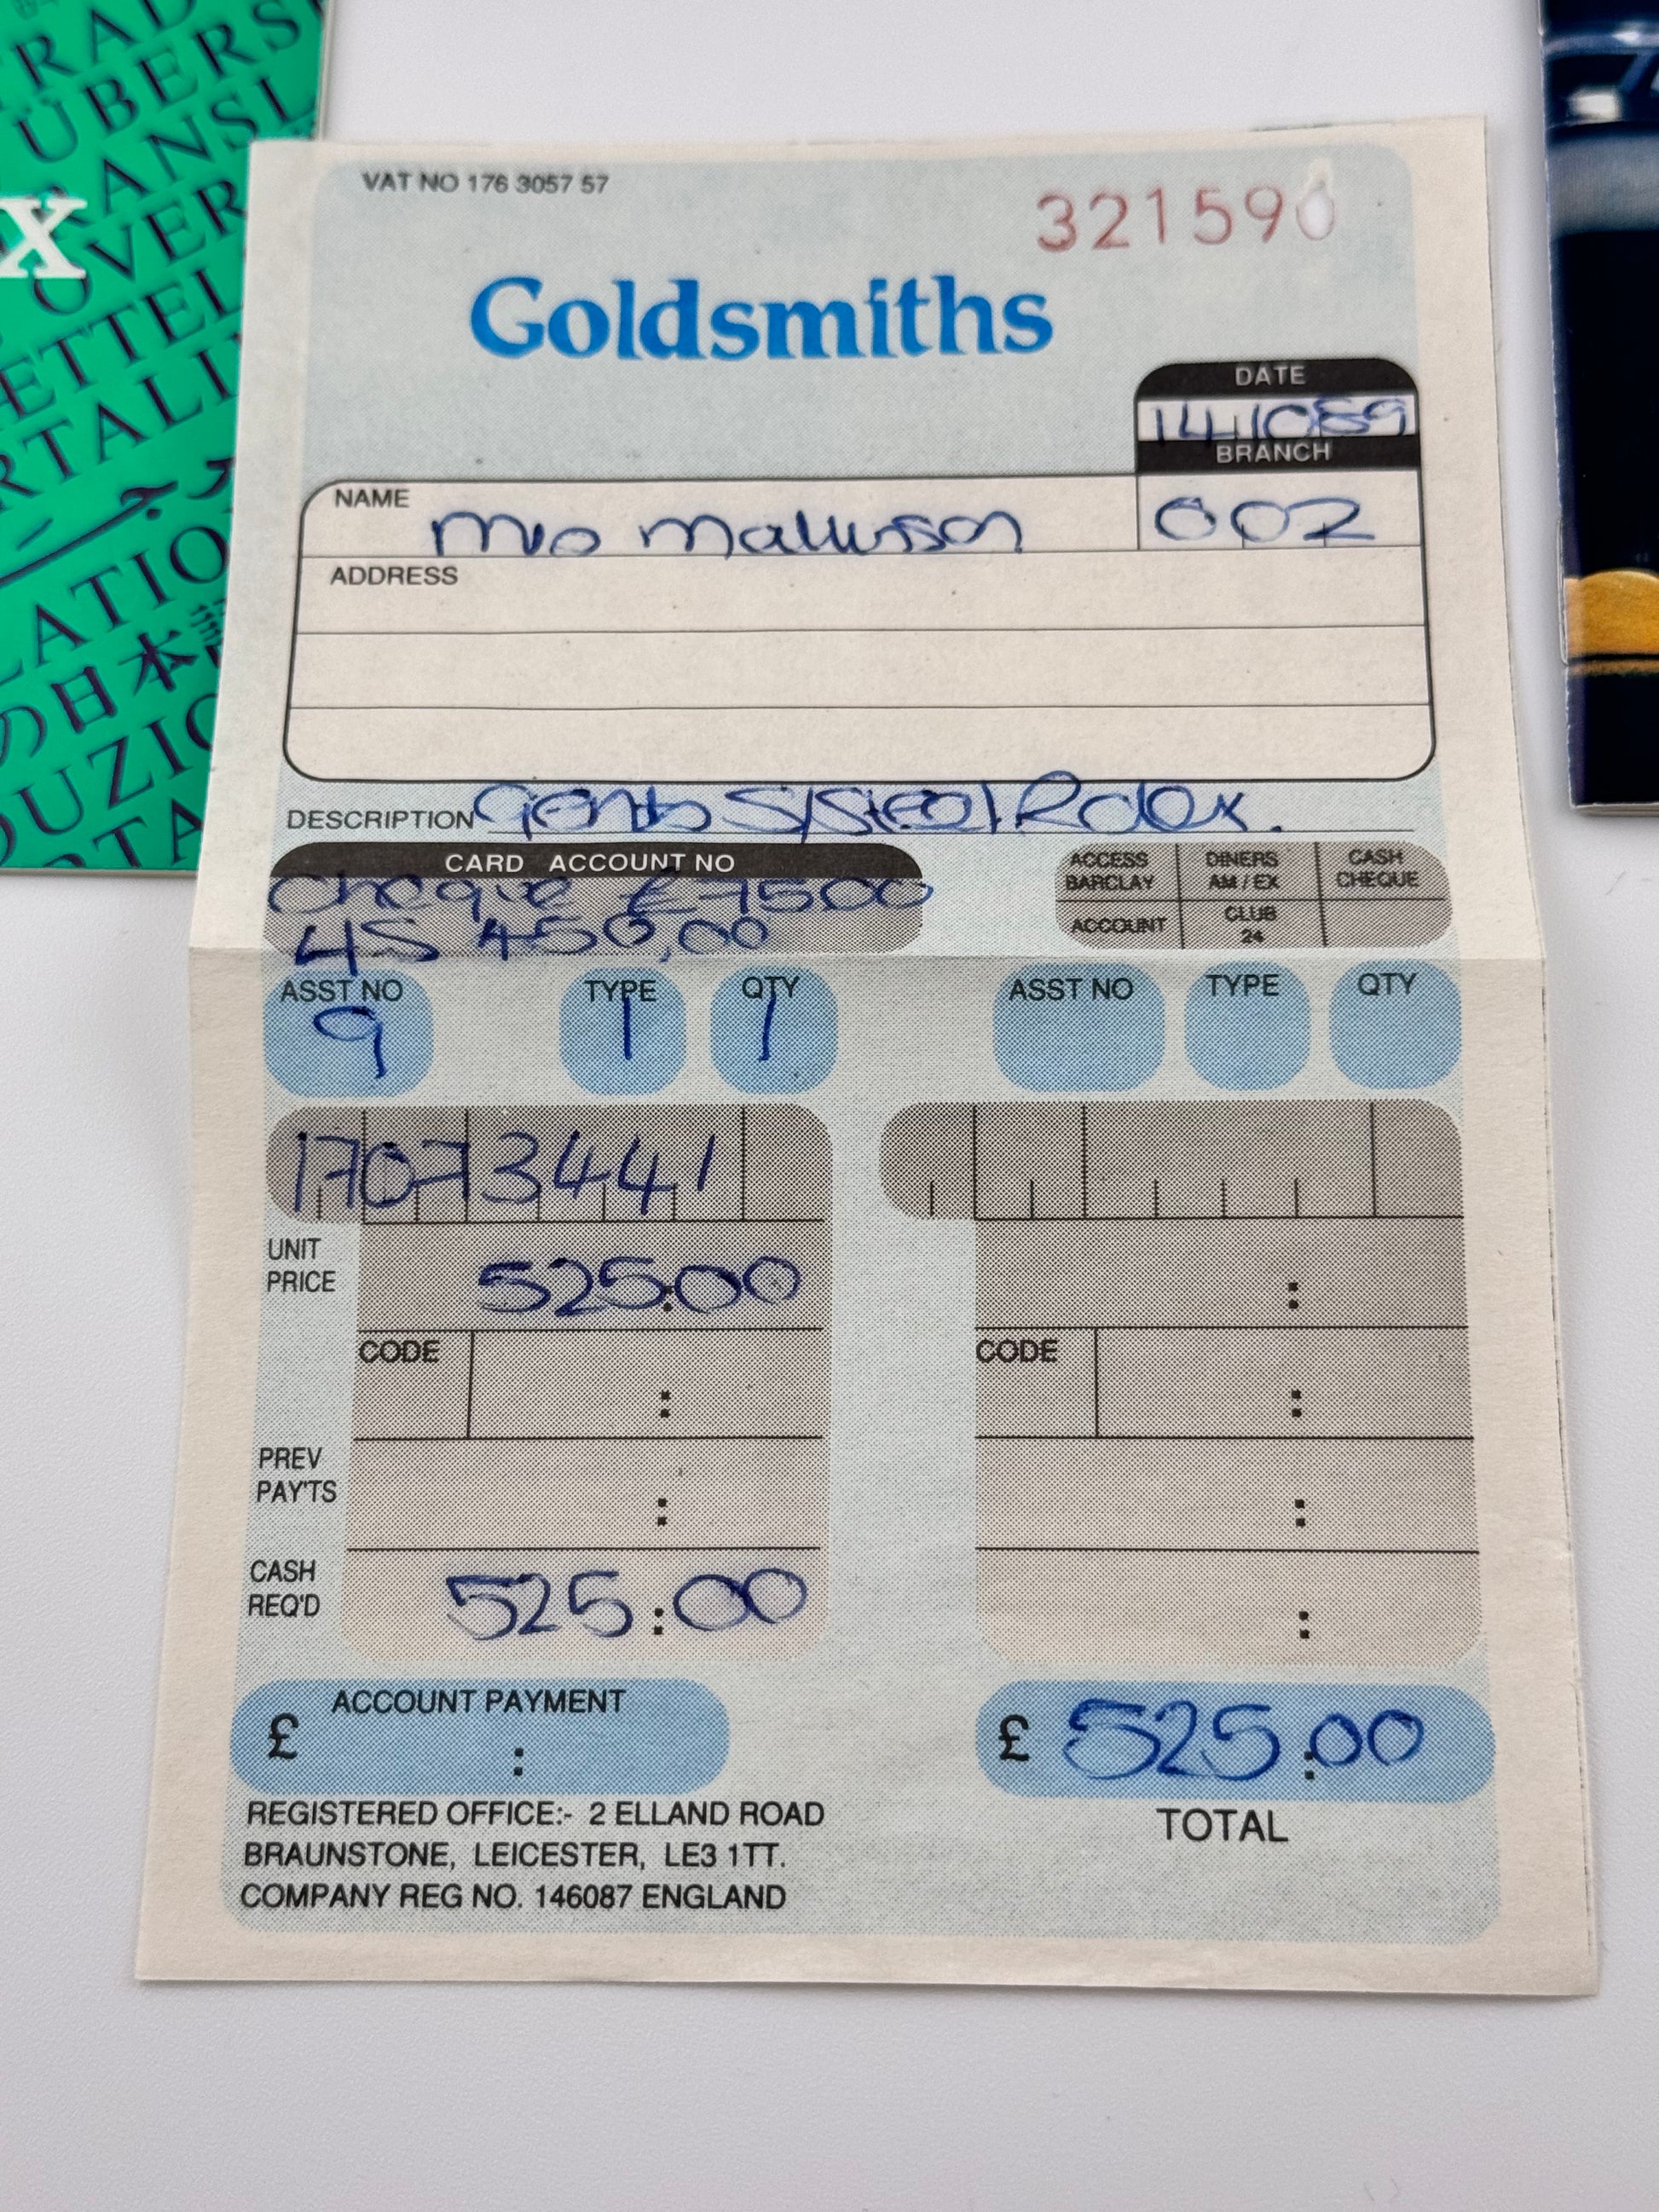 VAT NO 176 3057 57
321590
Goldsmiths
DATE
141089
BRANCH
002
NAME
Mrs Mallinson
ADDRESS
DESCRIPTION Gents S/Steel Rolex.
CARD ACCOUNT NO
Cheque £7500
HS 450.00
ACCESS BARCLAY
DINERS AM / EX
CASH CHEQUE
ACCOUNT
CLUB 24
ASST NO TYPE QTY
9 1 1
ASST NO TYPE QTY
17073441
UNIT PRICE
525.00
:
CODE
:
CODE
:
PREV PAY'TS
:
:
CASH REQ'D
525:00
:
ACCOUNT PAYMENT
£ :
£ 525:00
TOTAL
REGISTERED OFFICE:- 2 ELLAND ROAD
BRAUNSTONE, LEICESTER, LE3 1TT.
COMPANY REG NO. 146087 ENGLAND
TRAD
ÜBERS
TRANSL
x
OVER
LATIO
の日本語
DUZIO